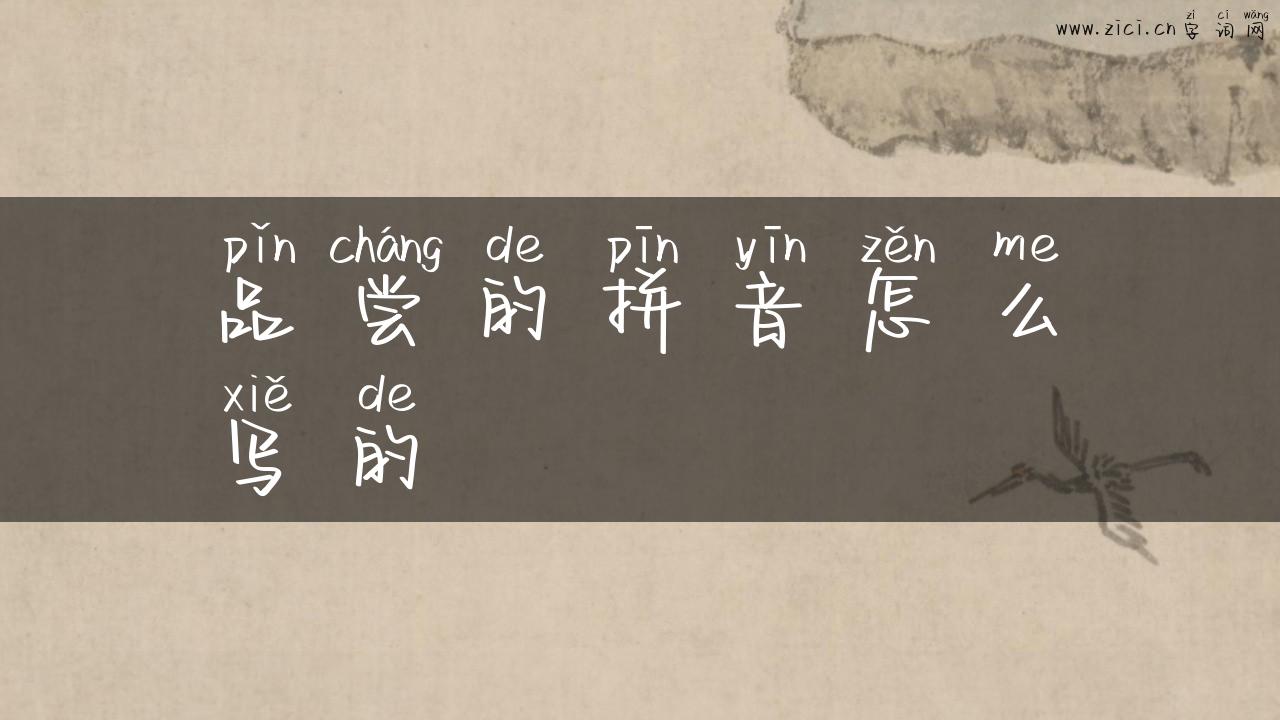 zì cí wǎng
www.zici.cn 字 词 网
pǐn cháng de pīn yīn zěn me
品 尝 的 拼 音 怎 么
xiě de
写 的